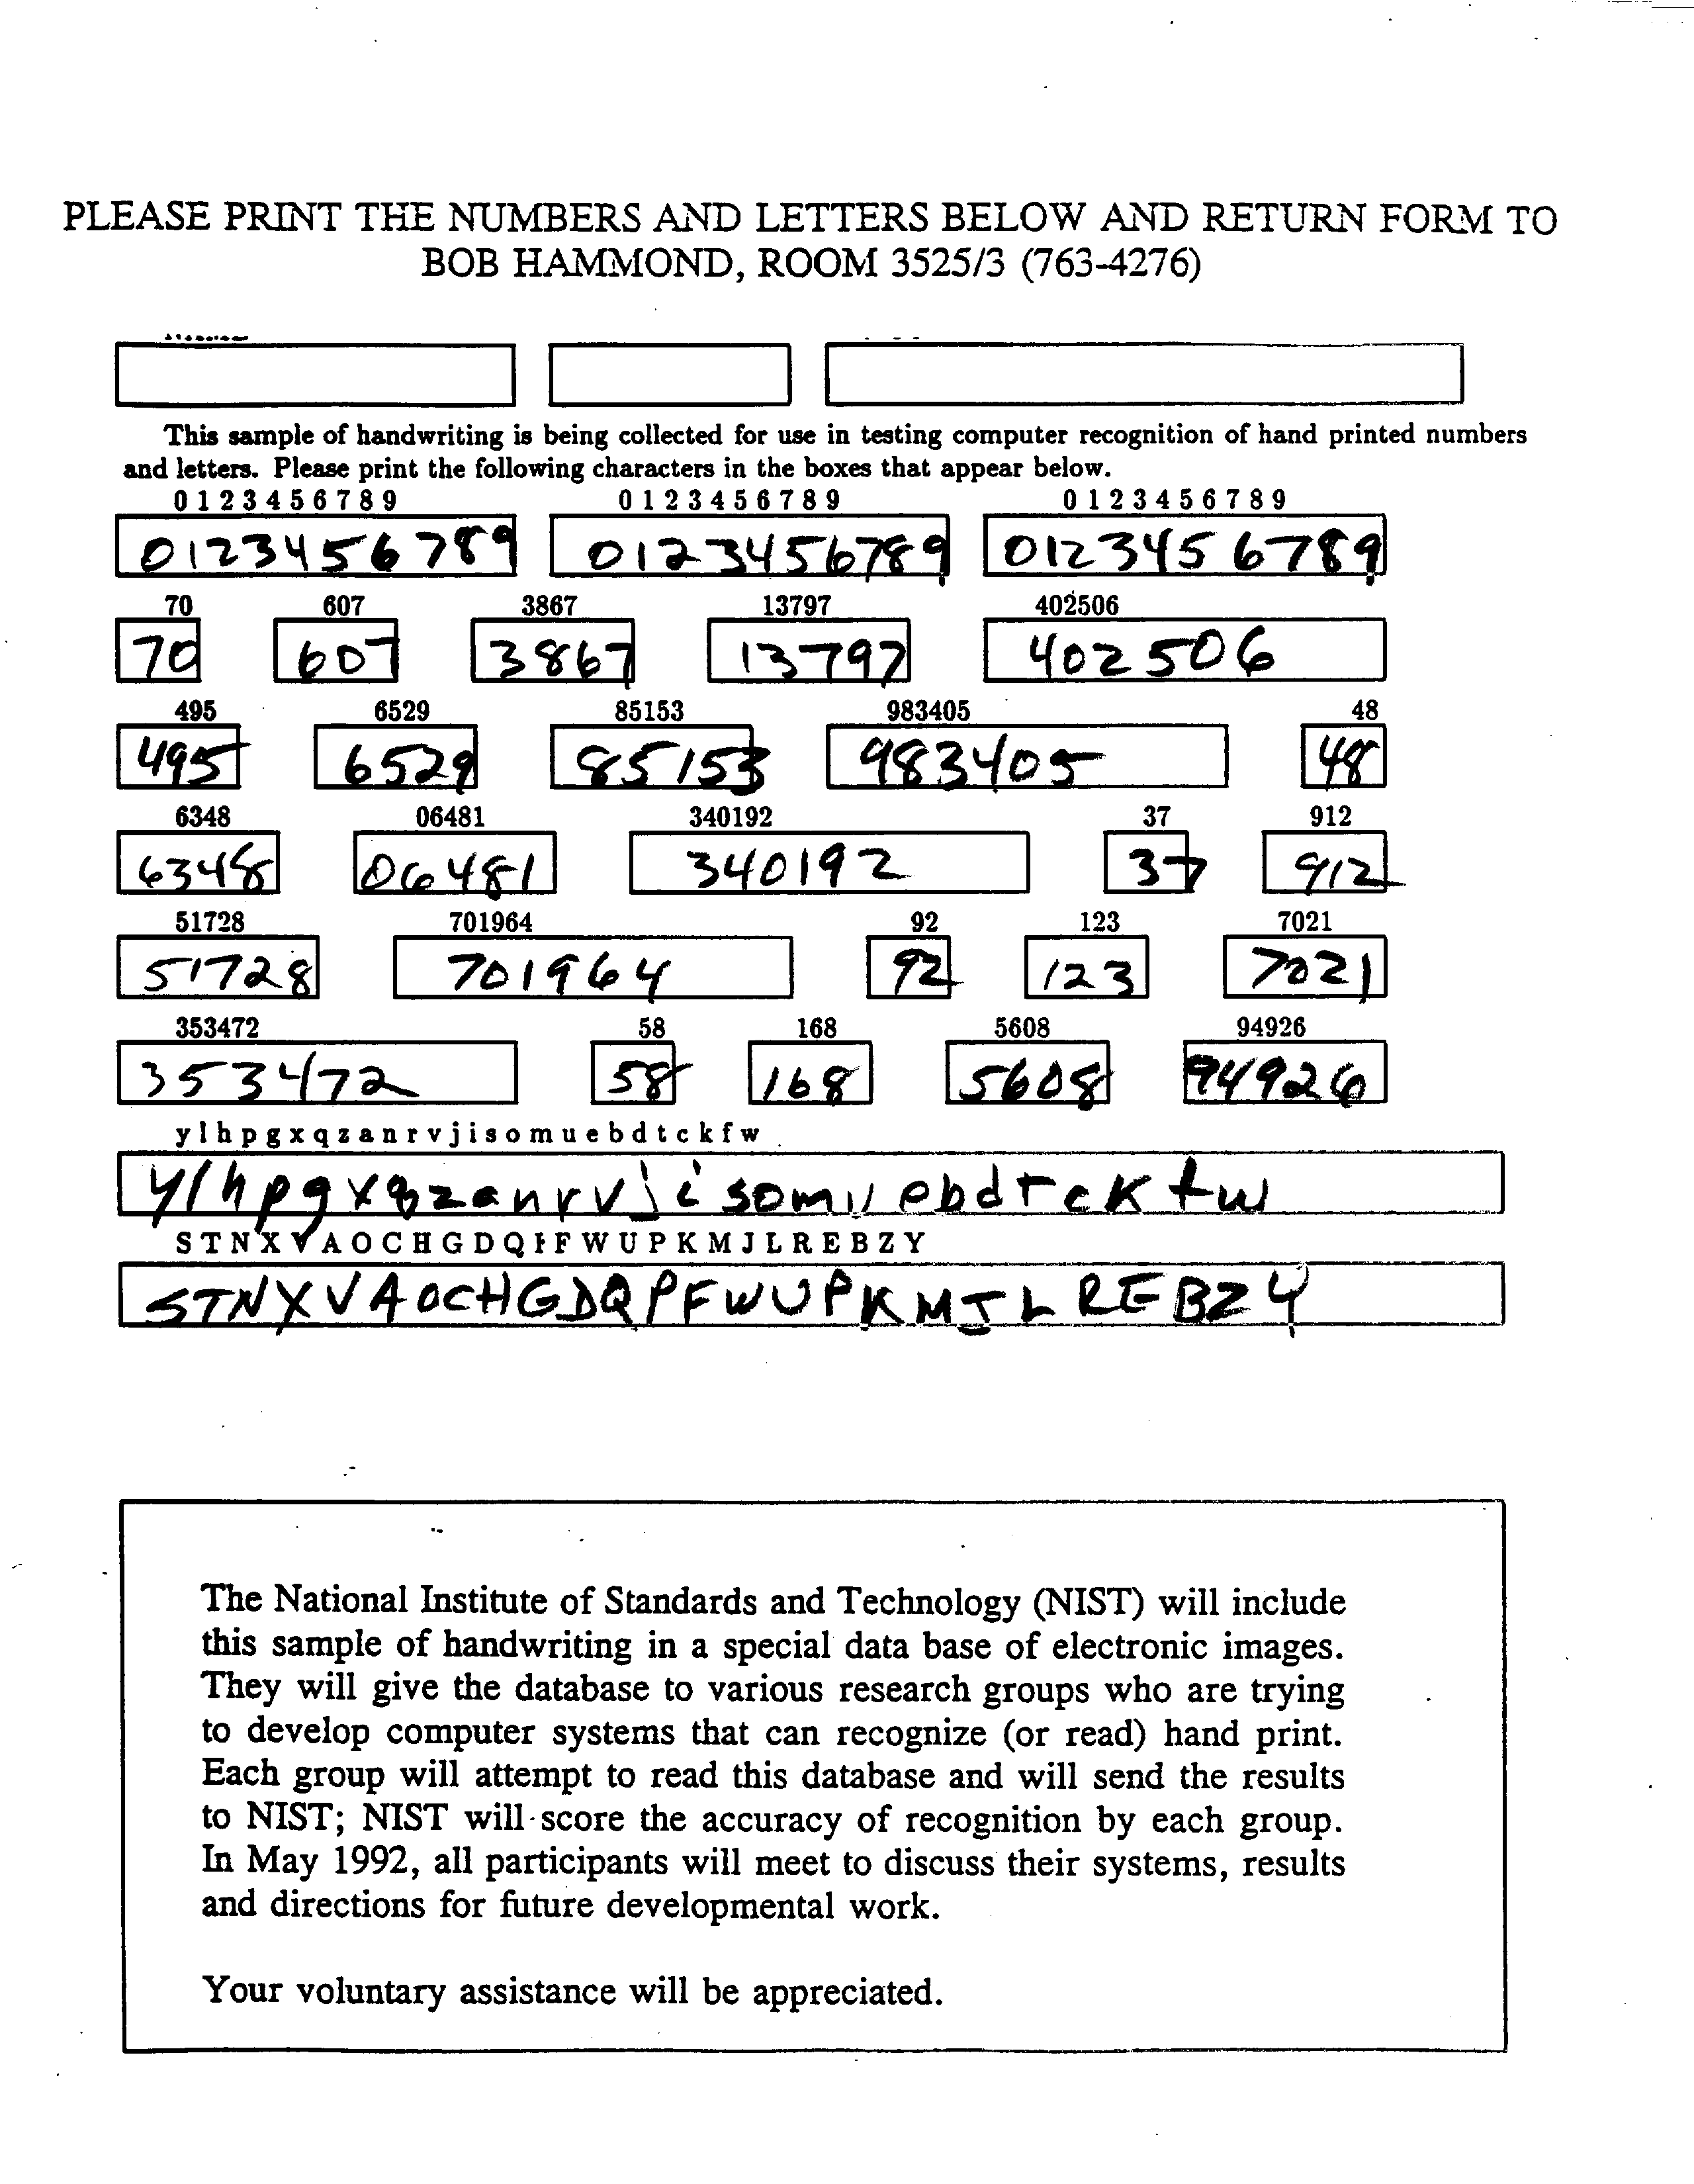 PLEASE PRINT THE NUMBERS AND LETTERS BELOW AND RETURN FORM TO
BOB HAMMOND, ROOM 3525/3 (763-4276)
This sample of handwriting is being collected for use in testing computer recognition of hand printed numbers
and letters. Please print the following characters in the boxes that appear below.
0 1 2 3 4 5 6 7 8 9 0 1 2 3 4 5 6 7 8 9 0 1 2 3 4 5 6 7 8 9
0123456789 0123456789 0123456789
70 607 3867 13797 402506
70 607 3867 13797 402506
495 6529 85153 983405 48
495 6529 85153 983405 48
6348 06481 340192 37 912
6348 06481 340192 37 912
51728 701964 92 123 7021
51728 701964 92 123 7021
353472 58 168 5608 94926
353472 58 168 5608 94926
y l h p g x q z a n r v j i s o m u e b d t c k f w
ylhpgxqzanrvjisomuebdtcKfw
S T N X V A O C H G D Q I F W U P K M J L R E B Z Y
STNXVAOCHGDQPFWUPKMJLREBZY
The National Institute of Standards and Technology (NIST) will include
this sample of handwriting in a special data base of electronic images.
They will give the database to various research groups who are trying
to develop computer systems that can recognize (or read) hand print.
Each group will attempt to read this database and will send the results
to NIST; NIST will score the accuracy of recognition by each group.
In May 1992, all participants will meet to discuss their systems, results
and directions for future developmental work.
Your voluntary assistance will be appreciated.